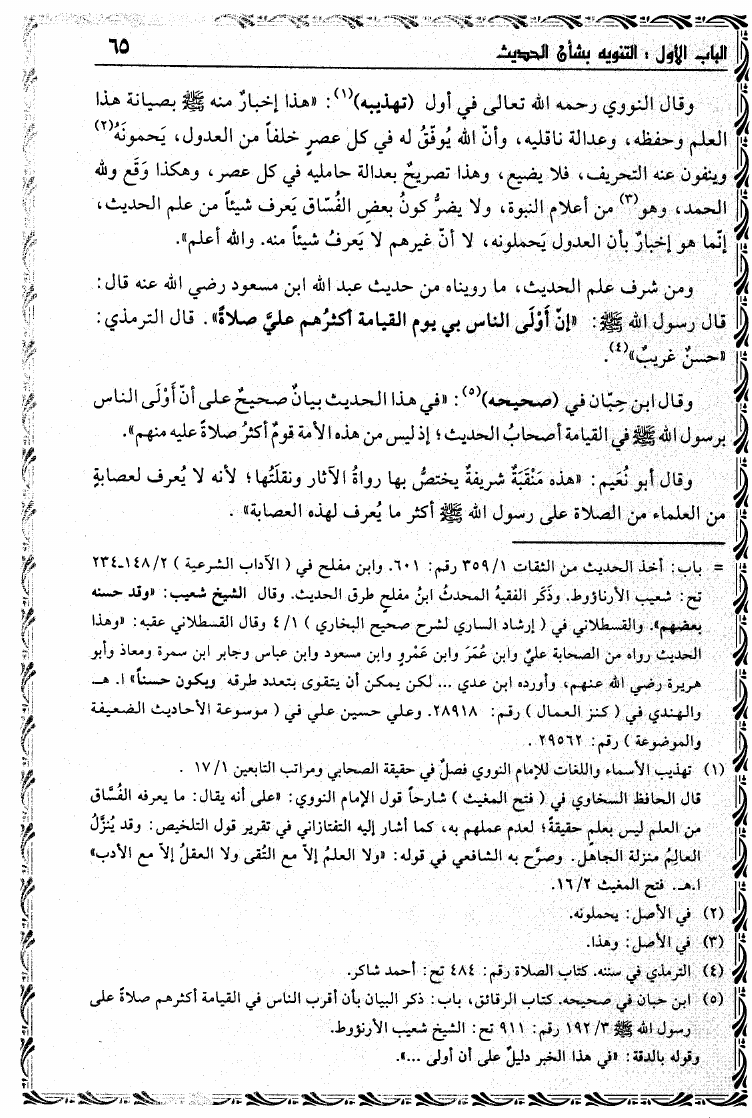 الباب الأول : التنويه بشأن الحديث ٦٥
وقال النووي رحمه الله تعالى في أول (تهذيبه)(١): «هذا إخبارٌ منه ﷺ بصيانة هذا
العلم وحفظه، وعدالة ناقليه، وأنّ الله يُوفّقُ له في كل عصرٍ خلفاً من العدول، يَحمونَهُ(٢)
وينفون عنه التحريف، فلا يضيع، وهذا تصريحٌ بعدالة حامليه في كل عصر، وهكذا وَقَع ولله
الحمد، وهو(٣) من أعلام النبوة، ولا يضرُّ كونُ بعضِ الفُسّاق يَعرف شيئاً من علم الحديث،
إنّما هو إخبارٌ بأن العدول يَحملونه، لا أنّ غيرهم لا يَعرفُ شيئاً منه. والله أعلم».
ومن شرف علم الحديث، ما رويناه من حديث عبد الله ابن مسعود رضي الله عنه قال:
قال رسول الله ﷺ: «إنّ أَوْلَى الناس بي يوم القيامة أكثرُهم عليَّ صلاةً». قال الترمذي:
«حسنٌ غريبٌ»(٤).
وقال ابن حِبّان في (صحيحه)(٥): «في هذا الحديث بيانٌ صحيحٌ على أنّ أَوْلَى الناس
برسول الله ﷺ في القيامة أصحابُ الحديث؛ إذ ليس من هذه الأمة قومٌ أكثرُ صلاةً عليه منهم».
وقال أبو نُعَيم: «هذه مَنْقَبَةٌ شريفةٌ يختصُّ بها رواةُ الآثار ونقلَتُها؛ لأنه لا يُعرف لعصابةٍ
من العلماء من الصلاة على رسول الله ﷺ أكثر ما يُعرف لهذه العصابة» .
= باب: أخذ الحديث من الثقات ٣٥٩/١ رقم: ٦٠١. وابن مفلح في ( الآداب الشرعية ) ١٤٨/٢ـ٢٣٤
تح: شعيب الأرناؤوط. وذَكَر الفقيهُ المحدثُ ابنُ مفلحٍ طرق الحديث. وقال الشيخ شعيب: «وقد حسنه
بعضهم». والقسطلاني في ( إرشاد الساري لشرح صحيح البخاري ) ٤/١ وقال القسطلاني عقبه: «وهذا
الحديث رواه من الصحابة عليٌ وابن عُمَرَ وابن عَمْروٍ وابن مسعود وابن عباس وجابر ابن سمرة ومعاذ وأبو
هريرة رضي الله عنهم، وأورده ابن عدي ... لكن يمكن أن يتقوى بتعدد طرقه ويكون حسناً» ا. هـ
والهندي في ( كنز العمال ) رقم: ٢٨٩١٨. وعلي حسين علي في ( موسوعة الأحاديث الضعيفة
والموضوعة ) رقم: ٢٩٥٦٢ .
(١) تهذيب الأسماء واللغات للإمام النووي فصلٌ في حقيقة الصحابي ومراتب التابعين ١٧/١ .
قال الحافظ السخاوي في ( فتح المغيث ) شارحاً قول الإمام النووي: «على أنه يقال: ما يعرفه الفُسَّاق
من العلم ليس بعلمٍ حقيقةً؛ لعدم عملهم به، كما أشار إليه التفتازاني في تقرير قول التلخيص: وقد يُنزَّلُ
العالِمُ منزلة الجاهل. وصرَّح به الشافعي في قوله: «ولا العلمُ إلاّ مع التُقى ولا العقلُ إلاّ مع الأدب»
ا.هـ. فتح المغيث ١٦/٢.
(٢) في الأصل: يحملونه.
(٣) في الأصل: وهذا.
(٤) الترمذي في سننه. كتاب الصلاة رقم: ٤٨٤ تح: أحمد شاكر.
(٥) ابن حبان في صحيحه. كتاب الرقائق، باب: ذكر البيان بأن أقرب الناس في القيامة أكثرهم صلاةً على
رسول الله ﷺ ١٩٢/٣ رقم: ٩١١ تح: الشيخ شعيب الأرنؤوط.
وقوله بالدقة: «في هذا الخبر دليلٌ على أن أولى ...».